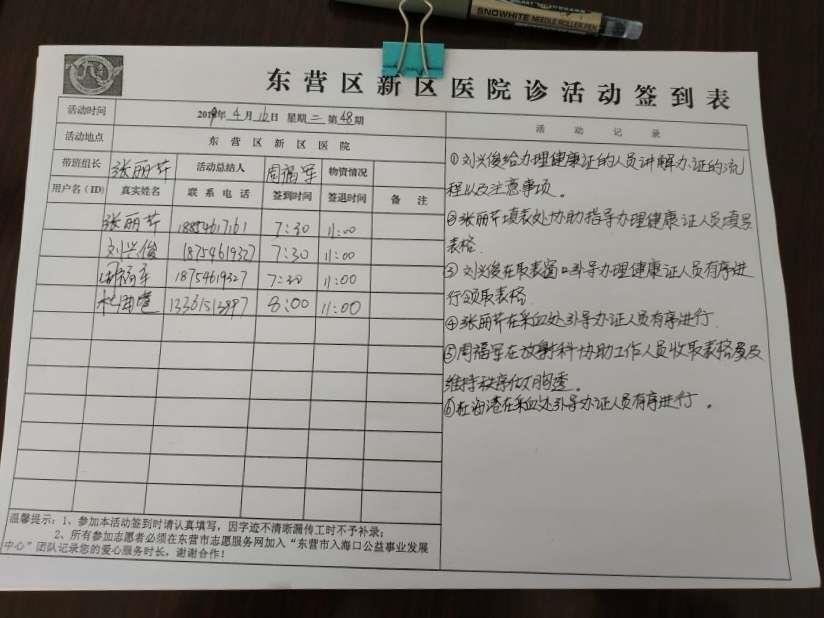 SNOWHITE NEEDLE ROLLER PEN
东营区新区医院诊活动签到表
活动时间 2019年4月16日 星期二 第48期
活动地点 东营区新区医院
带班组长 张丽芹 活动总结人 周福军 物资情况
用户名(ID) 真实姓名 联系电话 签到时间 签退时间 备注
张丽芹 18854617161 7:30 11:00
刘兴俊 18754619327 7:30 11:00
周福军 18754619327 7:30 11:00
杜海港 8:00 11:00
温馨提示:1、参加本活动签到时请认真填写,因字迹不清晰漏传工时不予补录;
2、所有参加志愿者必须在东营市志愿服务网加入“东营市入海口公益事业发展
中心”团队记录您的爱心服务时长,谢谢合作!
活动记录
①刘兴俊给办理健康证的人员讲解办证的流
程以及注意事项。
②张丽芹填表处协助指导办理健康证人员填写
表格.
③刘兴俊在取表窗口引导办理健康证人员有序进
行领取表格.
④张丽芹在采血处引导办证人员有序进行.
⑤周福军在放射科协助工作人员收取表格及
维持秩序做胸透。
⑥杜海港在采血处引导办证人员有序进行。